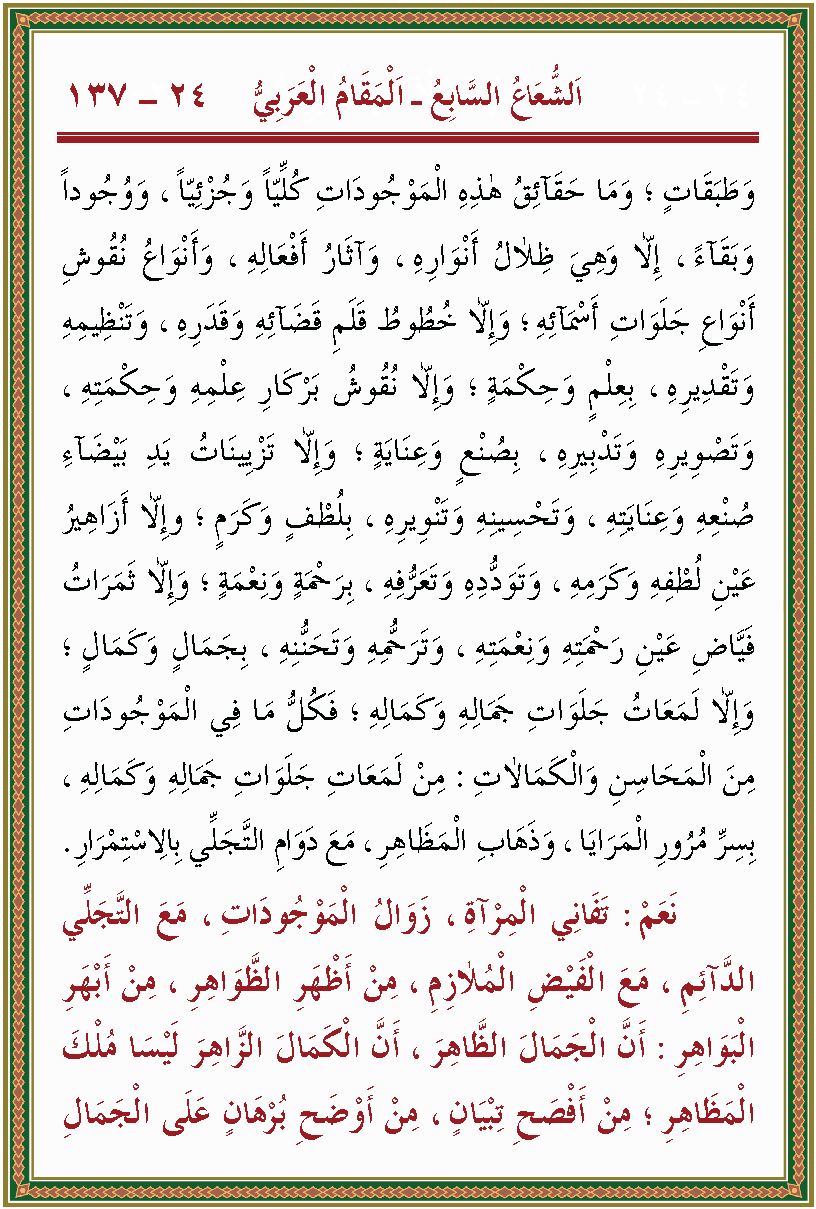 اَلشُّعَاعُ السَّابِعُ ـ اَلْمَقَامُ الْعَرَبِيُّ ٢٤ – ١٣٧
وَطَبَقَاتٍ ؛ وَمَا حَقَآئِقُ هٰذِهِ الْمَوْجُودَاتِ كُلِّيّاً وَجُزْئِيّاً ، وَوُجُوداً
وَبَقَآءً ، اِلّاَ وَهِيَ ظِلَالُ أَنْوَارِهِ ، وَآثَارُ أَفْعَالِهِ ، وَأَنْوَاعُ نُقُوشِ
أَنْوَاعِ جَلَوَاتِ أَسْمَآئِهِ ؛ وَإِلّاَ خُطُوطُ قَلَمِ قَضَآئِهِ وَقَدَرِهِ ، وَتَنْظِيمِهِ
وَتَقْدِيرِهِ ، بِعِلْمٍ وَحِكْمَةٍ ؛ وَإِلّاَ نُقُوشُ بَرْكَارِ عِلْمِهِ وَحِكْمَتِهِ ،
وَتَصْوِيرِهِ وَتَدْبِيرِهِ ، بِصُنْعٍ وَعِنَايَةٍ ؛ وَإِلّاَ تَزْيِينَاتُ يَدِ بَيْضَآءِ
صُنْعِهِ وَعِنَايَتِهِ ، وَتَحْسِينِهِ وَتَنْوِيرِهِ ، بِلُطْفٍ وَكَرَمٍ ؛ وإِلّاَ أَزَاهِيرُ
عَيْنِ لُطْفِهِ وَكَرَمِهِ ، وَتَوَدُّدِهِ وَتَعَرُّفِهِ ، بِرَحْمَةٍ وَنِعْمَةٍ ؛ وَإِلّاَ ثَمَرَاتُ
فَيَّاضِ عَيْنِ رَحْمَتِهِ وَنِعْمَتِهِ ، وَتَرَحُّمِهِ وَتَحَنُّنِهِ ، بِجَمَالٍ وَكَمَالٍ ؛
وَإِلّاَ لَمَعَاتُ جَلَوَاتِ جَمَالِهِ وَكَمَالِهِ ؛ فَكُلُّ مَا فِي الْمَوْجُودَاتِ
مِنَ الْمَحَاسِنِ وَالْكَمَالَاتِ : مِنْ لَمَعَاتِ جَلَوَاتِ جَمَالِهِ وَكَمَالِهِ ،
بِسِرِّ مُرُورِ الْمَرَايَا ، وَذَهَابِ الْمَظَاهِرِ ، مَعَ دَوَامِ التَّجَلِّي بِالِاسْتِمْرَارِ .
نَعَمْ : تَفَانِي الْمِرْآةِ ، زَوَالُ الْمَوْجُودَاتِ ، مَعَ التَّجَلِّي
الدَّآئِمِ ، مَعَ الْفَيْضِ الْمُلَازِمِ ، مِنْ أَظْهَرِ الظَّوَاهِرِ ، مِنْ أَبْهَرِ
الْبَوَاهِرِ : أَنَّ الْجَمَالَ الظَّاهِرَ ، أَنَّ الْكَمَالَ الزَّاهِرَ لَيْسَا مُلْكَ
الْمَظَاهِرِ ؛ مِنْ أَفْصَحِ تِبْيَانٍ ، مِنْ أَوْضَحِ بُرْهَانٍ عَلَى الْجَمَالِ